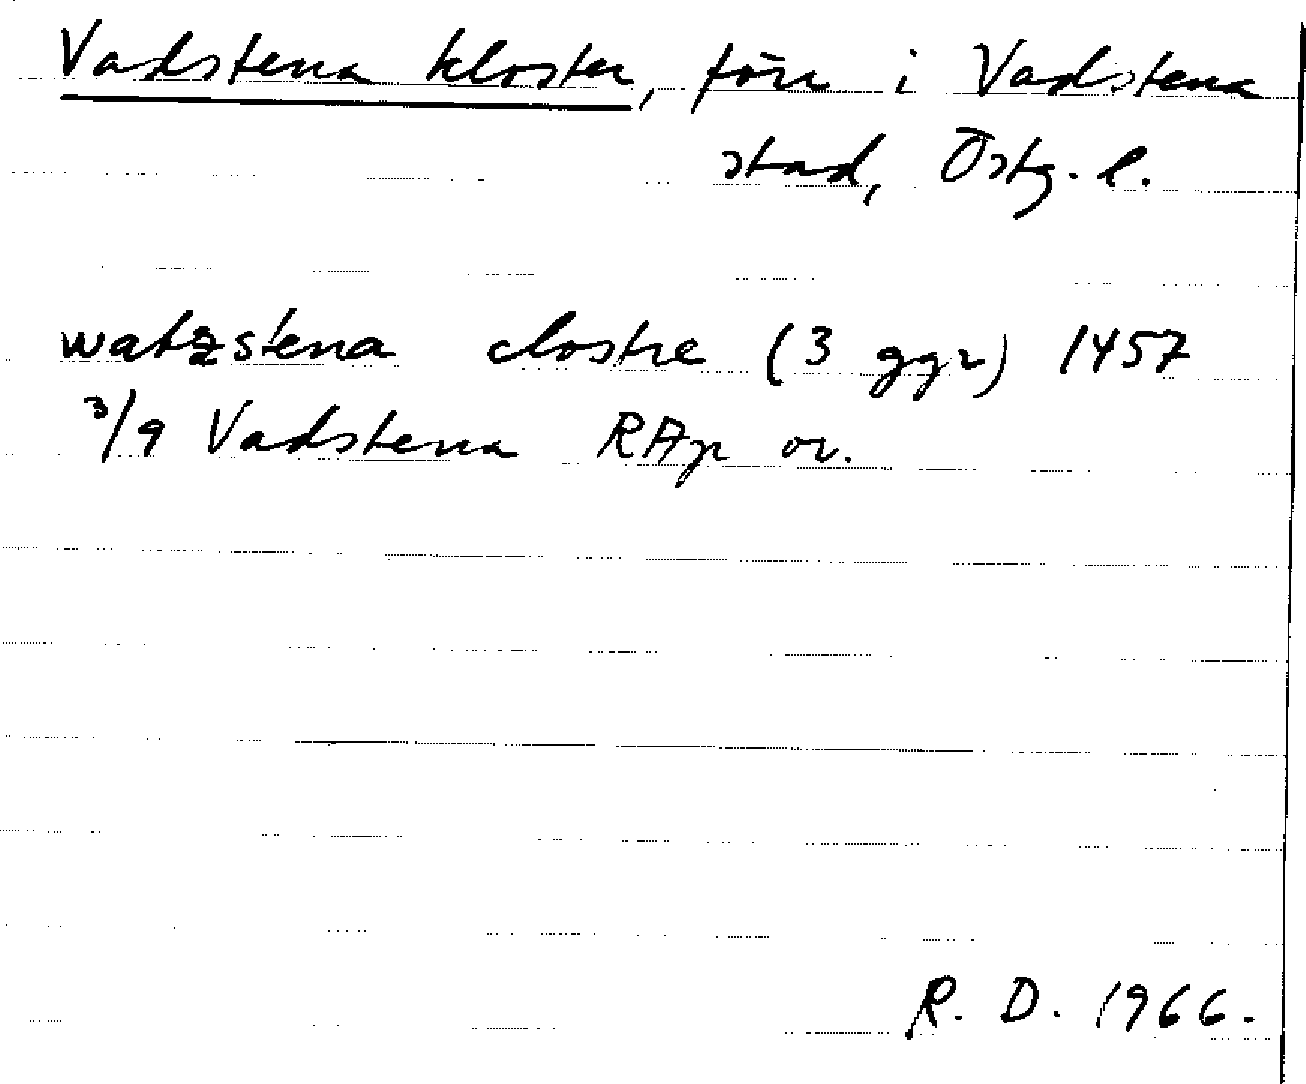 Vadstena kloster, förr i Vadstena
stad, Östg. l.
watzstena clostre (3 ggr) 1457
3/9 Vadstena RAp or.
R. D. 1966.